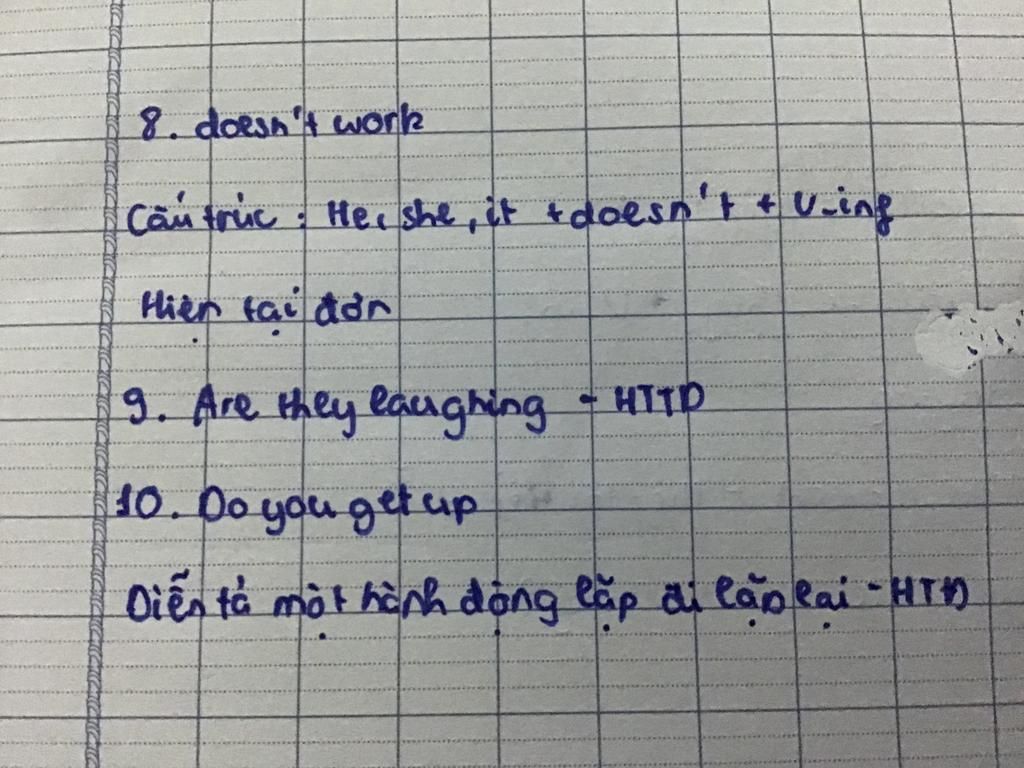 8. doesn't work
Cấu trúc : He, she, it + doesn't + V-ing
Hiện tại đơn
9. Are they laughing - HTTD
10. Do you get up
Diễn tả một hành động lặp đi lặp lại - HTĐ